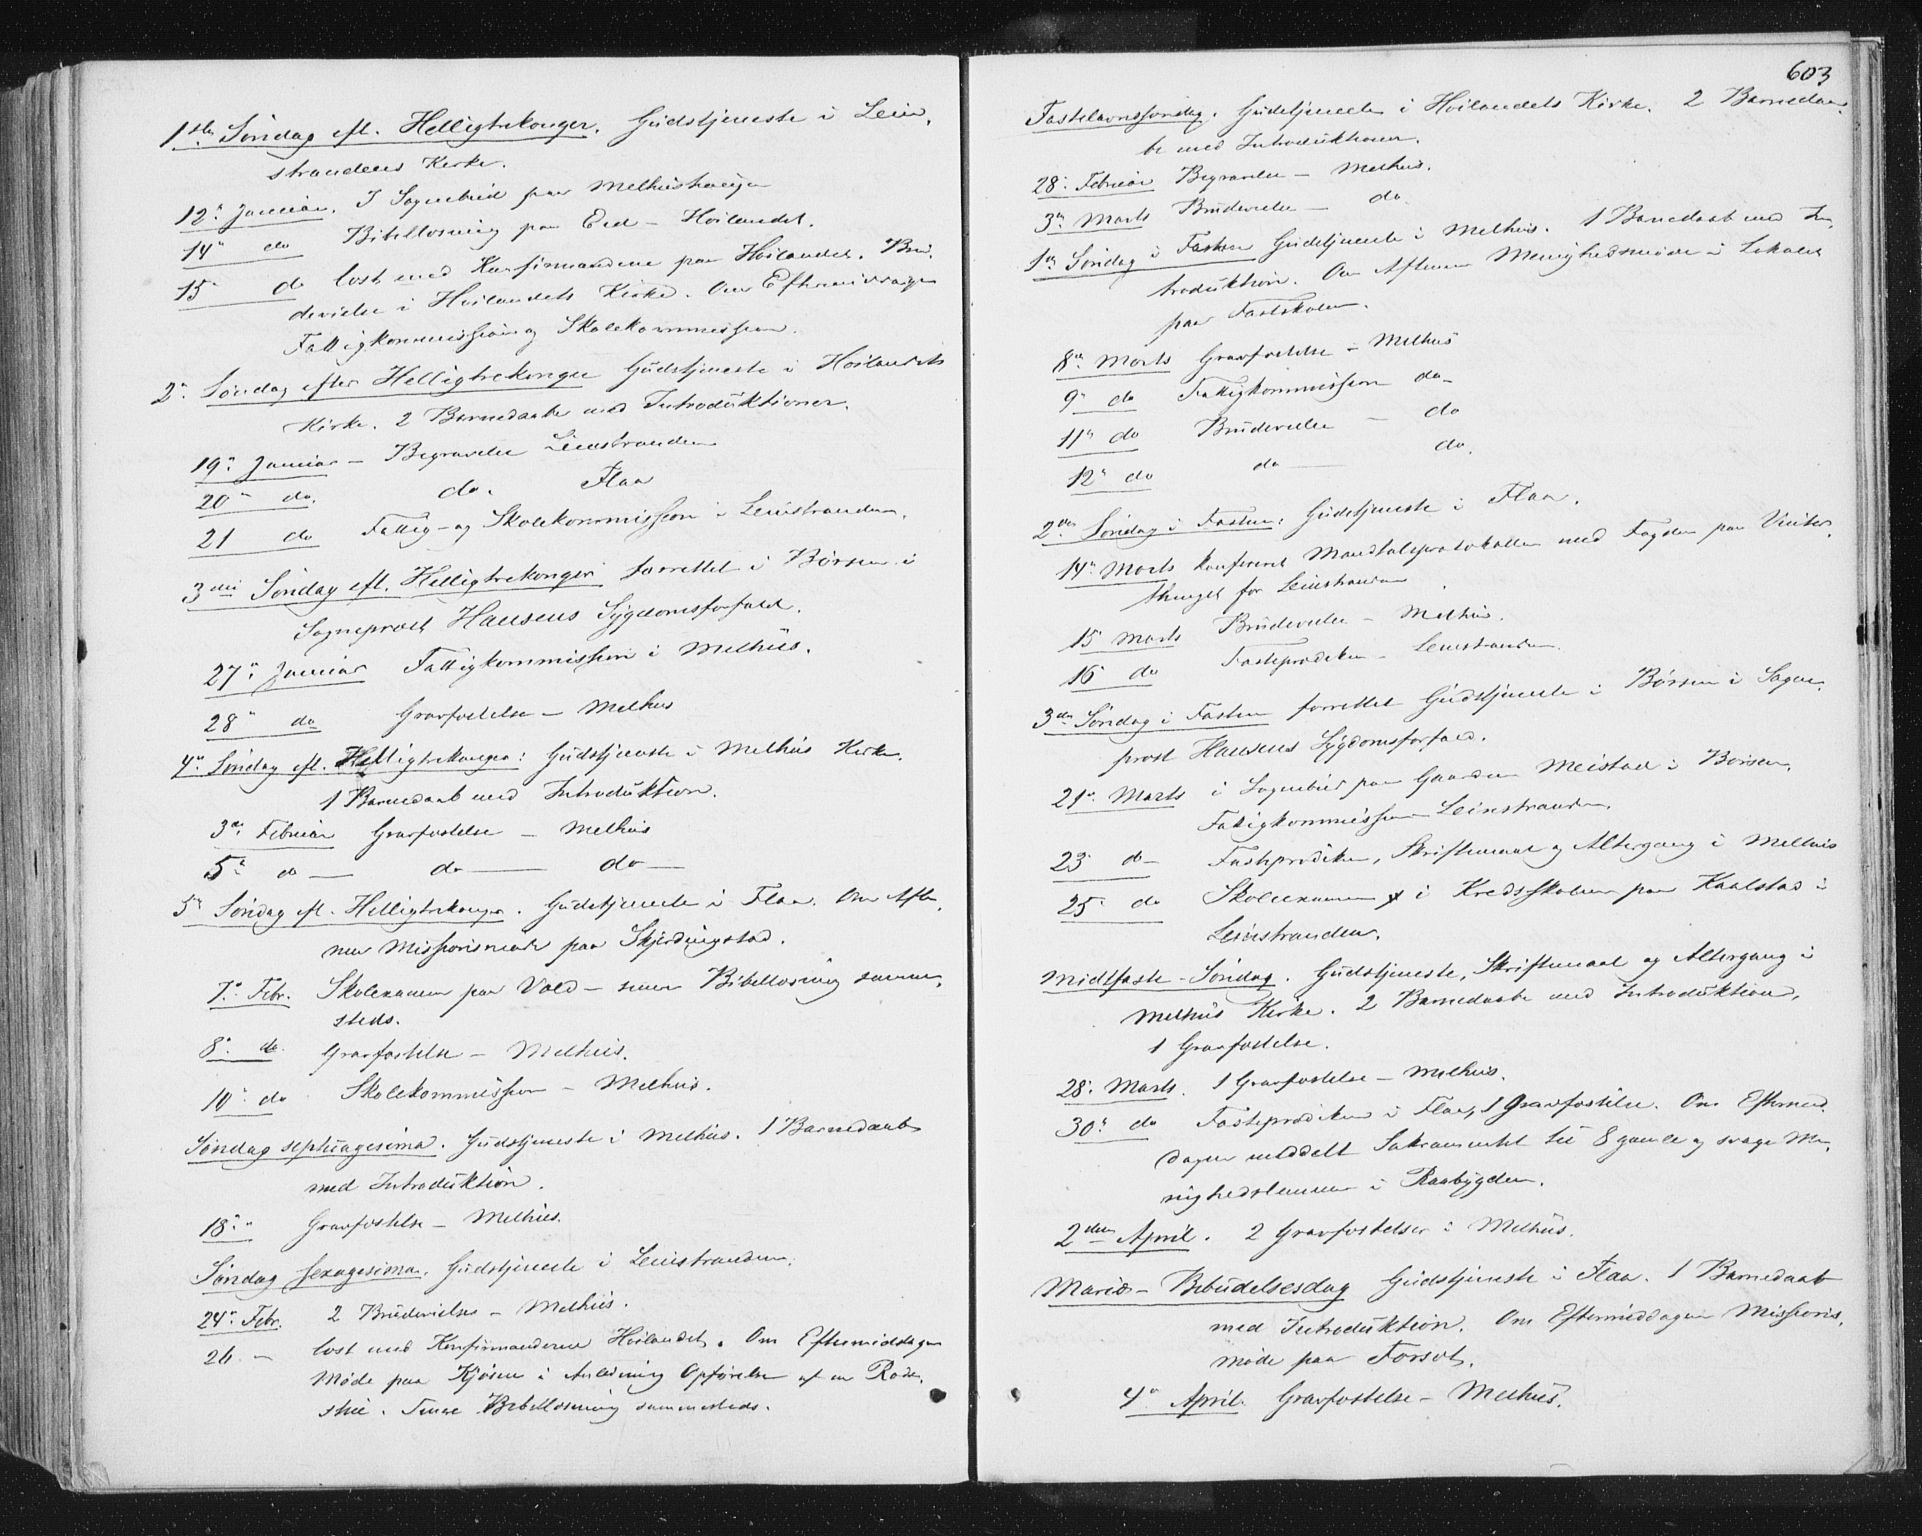 1ste Søndag eft. Helligtrekonger. Gudstjeneste i Lein,
strandens Kirke.
12te Januar. I Sognebud paa Melhus
14de do Bibellæsning paa Eid - Høilandet.
15 do læst med Konfirmanderne paa Høilandet. Bru,
devielse i Høilandets Kirke. Om Eftermiddagen
Fattigkommission og Skolekommission.
2n Søndag efter Helligtrekonger Gudstjeneste i Høilandets
Kirke. 2 Barnedaab med Introduktioner.
19n Januar - Begravelse Leinstranden
20n do. do. Flaa
21 do Fattig- og Skolekommission i Leinstranden.
3die Søndag eft. Helligtrekonger forrettet i Børsen i
Sogneprest Hansens Sygdomsforfald.
27n Januar Fattigkommission i Melhus.
28n do Gravfæstelse - Melhus
4n Søndag eft. Helligtrekonger: Gudstjeneste i Melhus Kirke.
1 Barnedaab med Introduktion.
3n Februar Gravfæstelse - Melhus
5n do - do - do -
5n Søndag eft. Helligtrekonger. Gudstjeneste i Flaa. Om Afte,
nen Missionsmøde paa Skjerdingstad.
7n Febr. Skolexamen paa Vold - senere Bibellæsning samme,
steds.
8n do. Gravfæstelse - Melhus.
10n do Skolekommission - Melhus.
Søndag septuagesima. Gudstjeneste i Melhus. 1 Barnedaab
med Introduktion.
18n " Gravfæstelse - Melhus.
Søndag sexagesima. Gudstjeneste i Leinstranden.
24n Febr. 2 Brudevielser - Melhus.
26 - læst med Konfirmanderne Høilandet. Om Eftermiddagen
Møde paa Kjøren i Anledning Opførelse af en Rode,
stue. Senere Bibellæsning sammesteds.
603
Fastelavnssøndag. Gudstjeneste i Høilandets Kirke. 2 Barnedaa,
be med Introduktioner.
28n Februar Begravelse - Melhus.
3n Marts Brudevielse - do.
1ste Søndag i Fasten Gudstjeneste i Melhus. 1 Barnedaab med In,
troduktion. Om Aftenen Menighedsmøde i Lokalet
paa Fastskolen.
8n Marts Gravfæstelse - Melhus
9n do Fattigkommission do -
11n do Brudevielse - do
12n do do - do.
2den Søndag i Fasten: Gudstjeneste i Flaa.
14n Marts konfereret Mandtalsprotokollen med Fogden paa Vinter,
thinget for Leinstranden.
15 Marts Brudevielse - Melhus.
16 do Fasteprædiken - Leinstranden.
3die Søndag i Fasten forrettet Gudstjeneste i Børsen i Sogne,
prest Hansens Sygdomsforfald.
21n Marts i Sognebud paa Gaarden Meistad i Børsen.
Fattigkommission Leinstranden.
23 do - Fasteprædiken, Skriftemaal og Altergang i Melhus
25 do Skolexamen i Kredsskolen paa Kaalstad i
Leinstranden.
Midtfaste-Søndag. Gudstjeneste, Skriftemaal og Altergang i
Melhus Kirke. 2 Barnedaabe med Introduktion,
1 Gravfæstelse.
28n Marts. 1 Gravfæstelse - Melhus.
30n do Fasteprædiken i Flaa, 1 Gravfæstelse. Om Eftermid,
dagen meddelt Sakramentet til 8 gamle og svage Me,
nighedslemmer i Raabygden.
2den April. 2 Gravfæstelser i Melhus.
Mariæ-Bebudelsesdag Gudstjeneste i Flaa. 1 Barnedaab
med Introduktion. Om Eftermiddagen Missions,
møde paa Forsøt.
4n April. Gravfæstelse - Melhus.